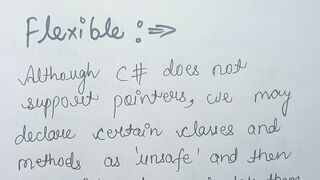 Flexible :⇒
Although C# does not
support pointers, we may
declare certain classes and
methods as 'unsafe' and then